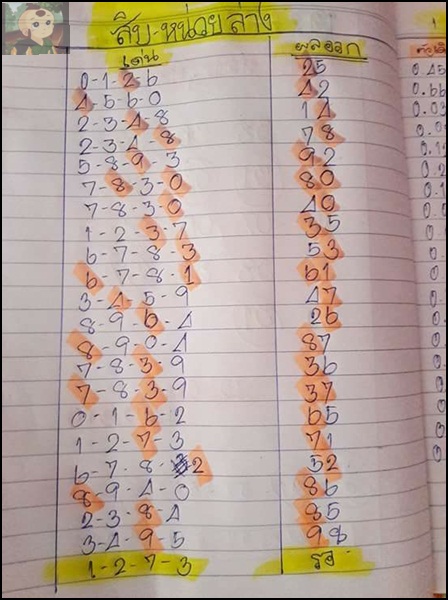 สิบ-หน่วย ล่าง
เด่น ผลออก
0-1-2-6 25
4-5-6-0 42
2-3-4-8 14
2-3-4-8 78
5-8-9-3 92
7-8-3-0 80
7-8-3-0 40
1-2-3-7 35
6-7-8-3 53
6-7-8-1 61
3-4-5-9 47
8-9-6-4 26
8-9-0-4 87
7-8-3-9 36
7-8-3-9 37
0-1-6-2 65
1-2-7-3 71
6-7-8-2 52
8-9-4-0 86
2-3-8-4 85
3-4-9-5 98
1-2-7-3 รอ